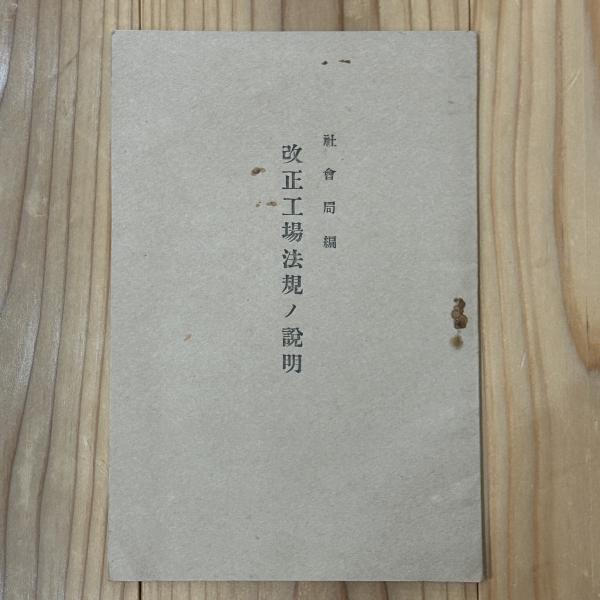 社會局編
改正工場法規ノ說明